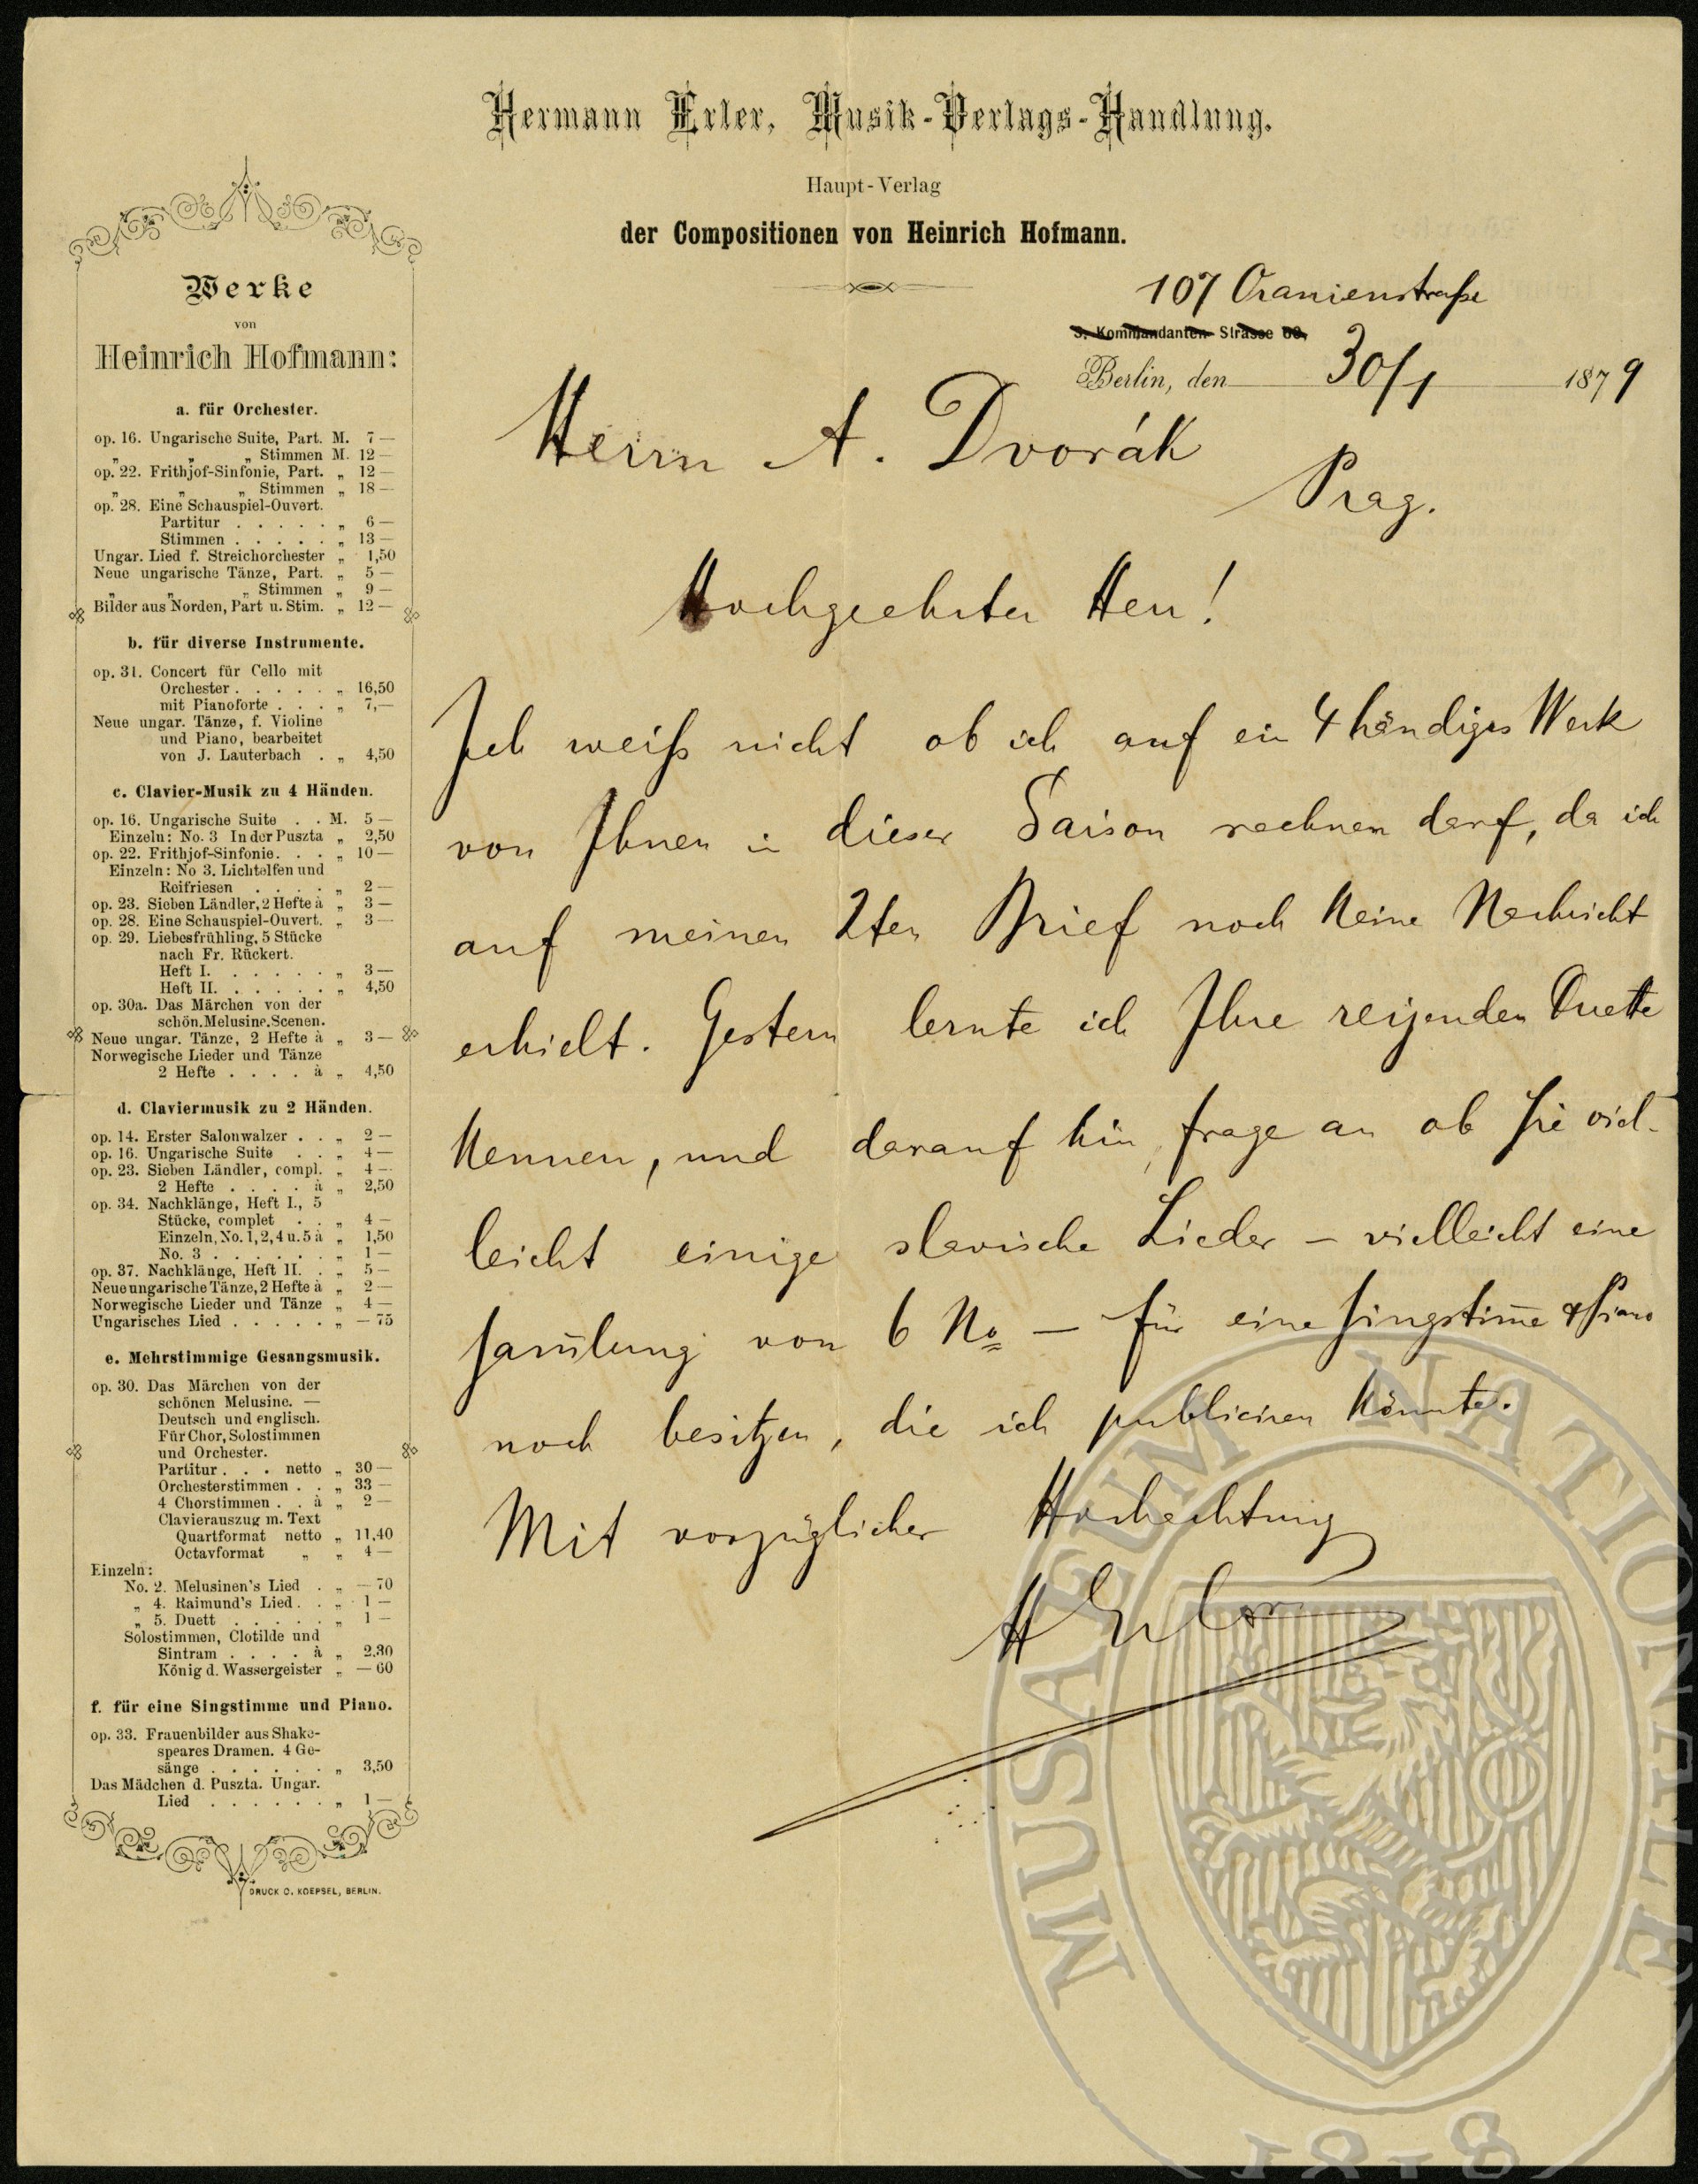 Hermann Erler, Musik-Verlags-Handlung.
Haupt-Verlag
der Compositionen von Heinrich Hofmann.
107 Oranienstraße
S. Kommandanten-Strasse
Berlin, den 30/1 1879
Herrn A. Dvorák
Prag.
Hochgeehrter Herr!
Ich weiß nicht ob ich auf ein 4händiges Werk
von Ihnen in dieser Saison rechnen darf, da ich
auf meinen 2ten Brief noch keine Nachricht
erhielt. Gestern lernte ich Ihre reizenden Duette
kennen, und darauf hin, frage an ob Sie viel-
leicht einige slavische Lieder – vielleicht eine
Sam̅lung von 6 No – für eine Singstim̅e & Piano
noch besitzen, die ich publiciren könnte.
Mit vorzüglicher Hochachtung
H Erler
Werke
von
Heinrich Hofmann:
a. für Orchester.
op. 16. Ungarische Suite, Part. M. 7 —
„ „ „ Stimmen M. 12 —
op. 22. Frithjof-Sinfonie, Part. „ 12 —
„ „ „ Stimmen „ 18 —
op. 28. Eine Schauspiel-Ouvert.
Partitur . . . . . „ 6 —
Stimmen . . . . . „ 13 —
Ungar. Lied f. Streichorchester „ 1,50
Neue ungarische Tänze, Part. „ 5 —
„ „ „ Stimmen „ 9 —
Bilder aus Norden, Part u. Stim. „ 12 —
b. für diverse Instrumente.
op. 31. Concert für Cello mit
Orchester . . . . . „ 16,50
mit Pianoforte . . . „ 7,—
Neue ungar. Tänze, f. Violine
und Piano, bearbeitet
von J. Lauterbach . „ 4,50
c. Clavier-Musik zu 4 Händen.
op. 16. Ungarische Suite . . M. 5 —
Einzeln: No. 3 In der Puszta „ 2,50
op. 22. Frithjof-Sinfonie. . . „ 10 —
Einzeln: No 3. Lichtelfen und
Reifriesen . . . . „ 2 —
op. 23. Sieben Ländler, 2 Hefte à „ 3 —
op. 28. Eine Schauspiel-Ouvert. „ 3 —
op. 29. Liebesfrühling, 5 Stücke
nach Fr. Rückert.
Heft I. . . . . . „ 3 —
Heft II. . . . . . „ 4,50
op. 30a. Das Märchen von der
schön. Melusine. Scenen.
Neue ungar. Tänze, 2 Hefte à „ 3 —
Norwegische Lieder und Tänze
2 Hefte . . . . à „ 4,50
d. Claviermusik zu 2 Händen.
op. 14. Erster Salonwalzer . . „ 2 —
op. 16. Ungarische Suite . . „ 4 —
op. 23. Sieben Ländler, compl. „ 4 —
2 Hefte . . . . à „ 2,50
op. 34. Nachklänge, Heft I., 5
Stücke, complet . . „ 4 —
Einzeln, No. 1, 2, 4 u. 5 à „ 1,50
No. 3 . . . . . . „ 1 —
op. 37. Nachklänge, Heft II. . „ 5 —
Neue ungarische Tänze, 2 Hefte à „ 2 —
Norwegische Lieder und Tänze „ 4 —
Ungarisches Lied . . . . . „ — 75
e. Mehrstimmige Gesangsmusik.
op. 30. Das Märchen von der
schönen Melusine. —
Deutsch und englisch.
Für Chor, Solostimmen
und Orchester.
Partitur . . . netto „ 30 —
Orchesterstimmen . . „ 33 —
4 Chorstimmen . . à „ 2 —
Clavierauszug m. Text
Quartformat netto „ 11,40
Octavformat „ „ 4 —
Einzeln:
No. 2. Melusinen's Lied . „ — 70
„ 4. Raimund's Lied . . „ 1 —
„ 5. Duett . . . . . „ 1 —
Solostimmen, Clotilde und
Sintram . . . . à „ 2,30
König d. Wassergeister „ — 60
f. für eine Singstimme und Piano.
op. 33. Frauenbilder aus Shake-
speares Dramen. 4 Ge-
sänge . . . . . . „ 3,50
Das Mädchen d. Puszta. Ungar.
Lied . . . . . . „ 1 —
DRUCK C. KOEPSEL, BERLIN.
MUSAEUM NATIONALE
1818